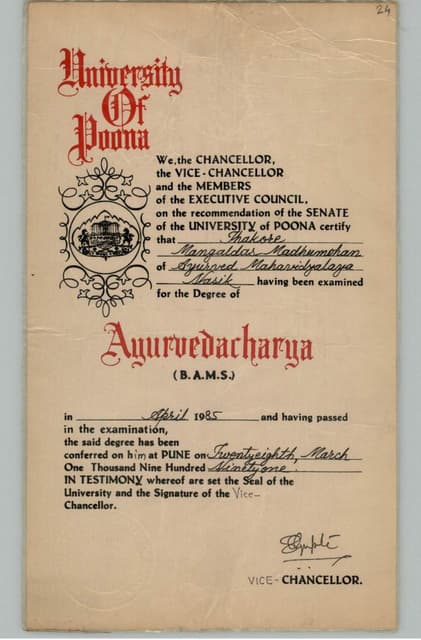 24
University
Of
Poona
We, the CHANCELLOR,
the VICE-CHANCELLOR
and the MEMBERS
of the EXECUTIVE COUNCIL,
on the recommendation of the SENATE
of the UNIVERSITY of POONA certify
that Thakore
Mangaldas Madhumohan
of Ayurved Mahavidyalaya
Nasik having been examined
for the Degree of
Ayurvedacharya
(B.A.M.S.)
in April 1985 and having passed
in the examination,
the said degree has been
conferred on him at PUNE on Twentyeighth, March
One Thousand Nine Hundred Ninetyone.
IN TESTIMONY whereof are set the Seal of the
University and the Signature of the Vice-
Chancellor.
VICE-CHANCELLOR.